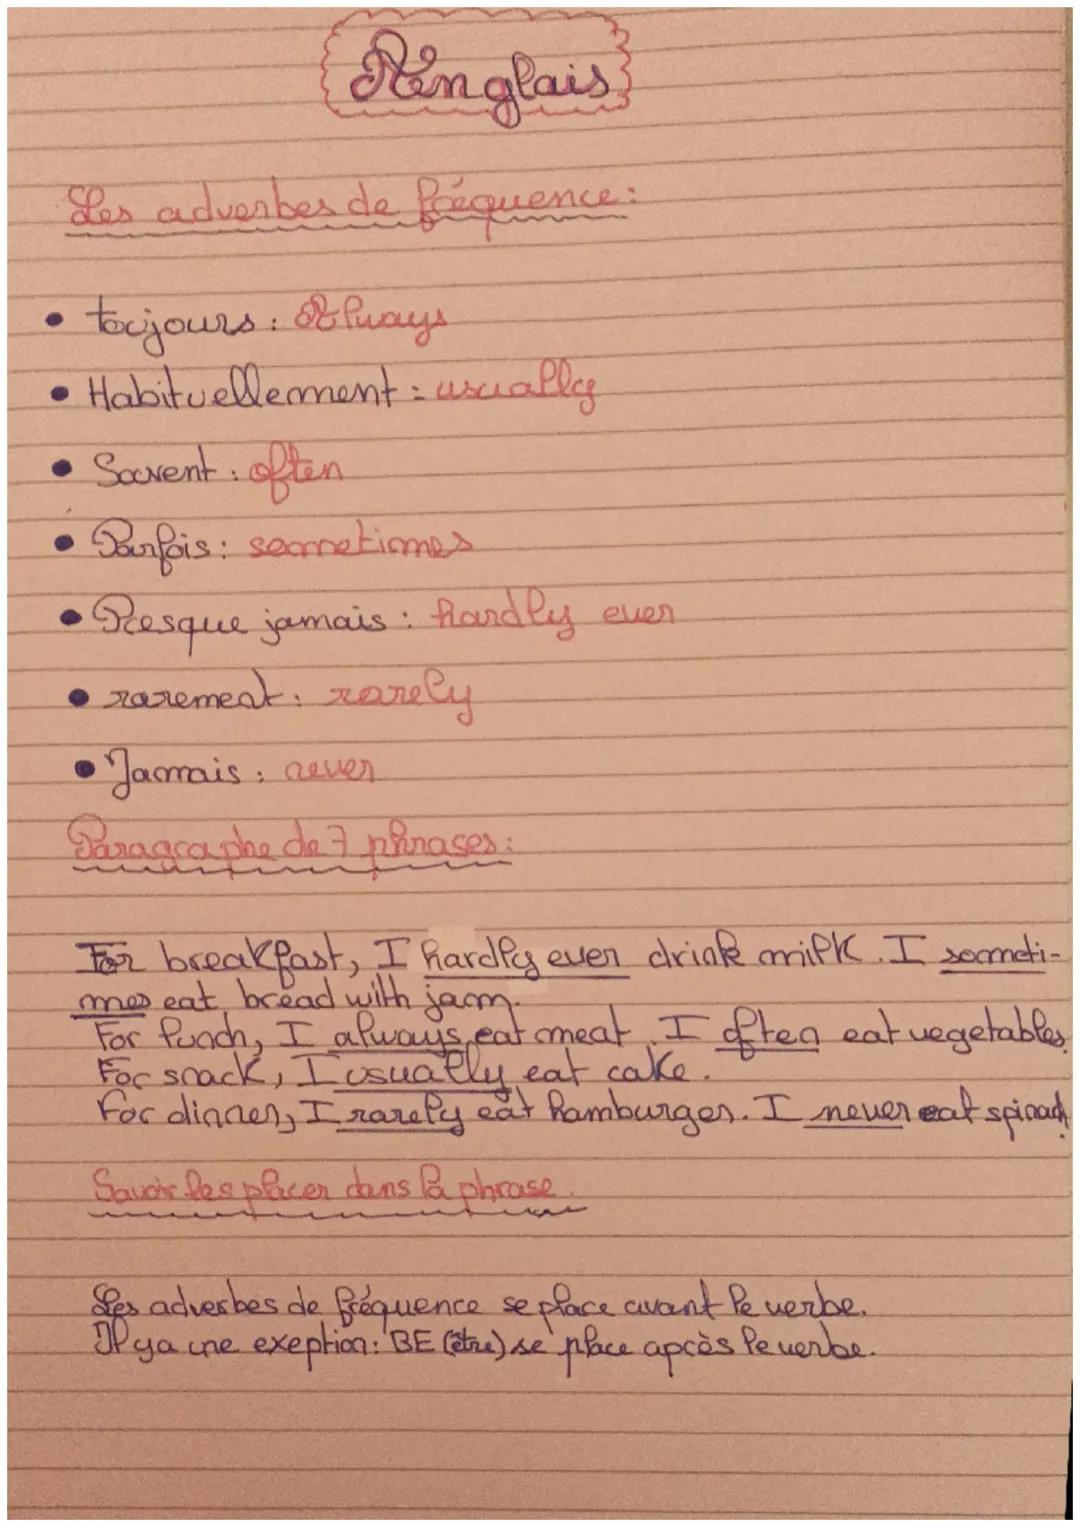 Anglais
Les adverbes de fréquence:
• toujours: Always
• Habituellement: usually
• Souvent: often
• Parfois: sometimes
• Presque jamais: hardly ever
• rarement: rarely
• Jamais: never
Paragraphe de 7 phrases:
For breakfast, I hardly ever drink milk. I someti-
mes eat bread with jam.
For lunch, I always eat meat. I often eat vegetables.
For snack, I usually eat cake.
For dinner, I rarely eat hamburger. I never eat spinach.
Savoir les placer dans la phrase.
Les adverbes de fréquence se place avant le verbe.
Il ya une exeption: BE (être) se place après le verbe.